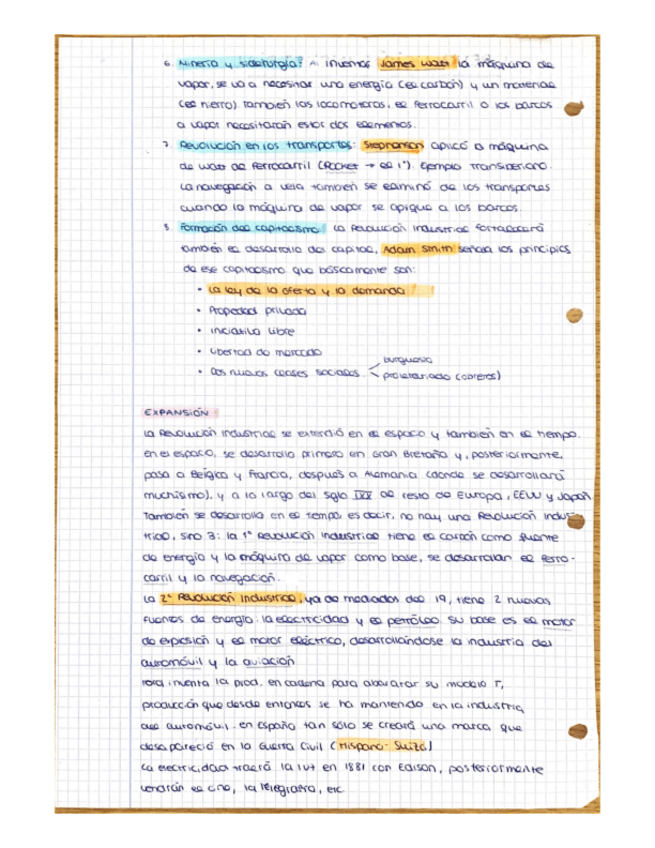 6. Minería y siderurgia: Al inventar James Watt la máquina de
vapor, se va a necesitar una energía (el carbón) y un material
(el hierro) también las locomotoras, el ferrocarril o los barcos
a vapor necesitarán estos dos elementos.
7. Revolución en los transportes: Stephenson aplicó a máquina
de Watt al ferrocarril (Rocket → el 1º). Ejemplo Transiberiano.
La navegación a vela también se eliminó de los transportes
cuando la máquina de vapor se aplique a los barcos.
8. Formación del capitalismo: La Revolución Industrial fortalecerá
también el desarrollo del capital, Adam Smith señala los principios
de ese capitalismo que básicamente son:
• La ley de la oferta y la demanda
• Propiedad privada
• Iniciativa libre
• Libertad de mercado
• Dos nuevas clases sociales
burguesía
proletariado (obreros)
EXPANSIÓN
La Revolución Industrial se extendió en el espacio y también en el tiempo.
En el espacio, se desarrolla primero en Gran Bretaña y, posteriormente,
pasa a Bélgica y Francia, después a Alemania (donde se desarrollará
muchísimo), y a lo largo del siglo XIX al resto de Europa, EEUU y Japón
También se desarrolla en el tiempo, es decir, no hay una Revolución Indus
trial, sino 3: la 1ª Revolución Industrial tiene el carbón como fuente
de energía y la máquina de vapor como base, se desarrollan el ferro-
carril y la navegación.
La 2ª Revolución Industrial, ya de mediados del 19, tiene 2 nuevas
fuentes de energía: la electricidad y el petróleo. Su base es el motor
de explosión y el motor eléctrico, desarrollándose la industria del
automóvil y la aviación
Ford inventa la prod. en cadena para abaratar su modelo T,
producción que desde entonces se ha mantenido en la industria
del automóvil. En España tan sólo se creará una marca que
desapareció en la Guerra Civil (Hispano-Suiza)
La electricidad traerá la luz en 1881 con Edison, posteriormente
vendrán el cine, la telegrafía, etc.